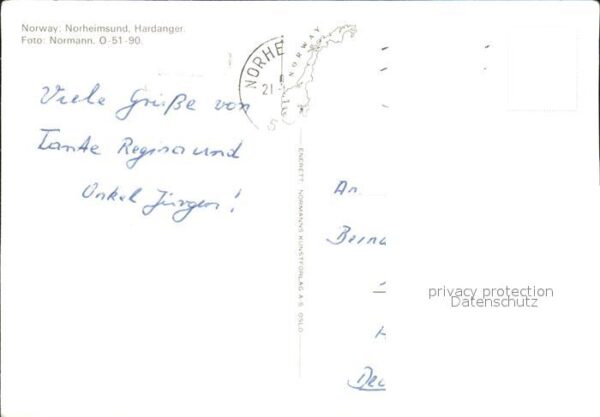 Norway: Norheimsund, Hardanger.
Foto: Normann. O-51-90.
NORHE
21-
S
NORWAY
Viele Grüße von
Tante Regina und
Onkel Jürgen!
ENERETT: NORMANNS KUNSTFORLAG A·S. OSLO
An
Berna
H
Deu
privacy protection
Datenschutz